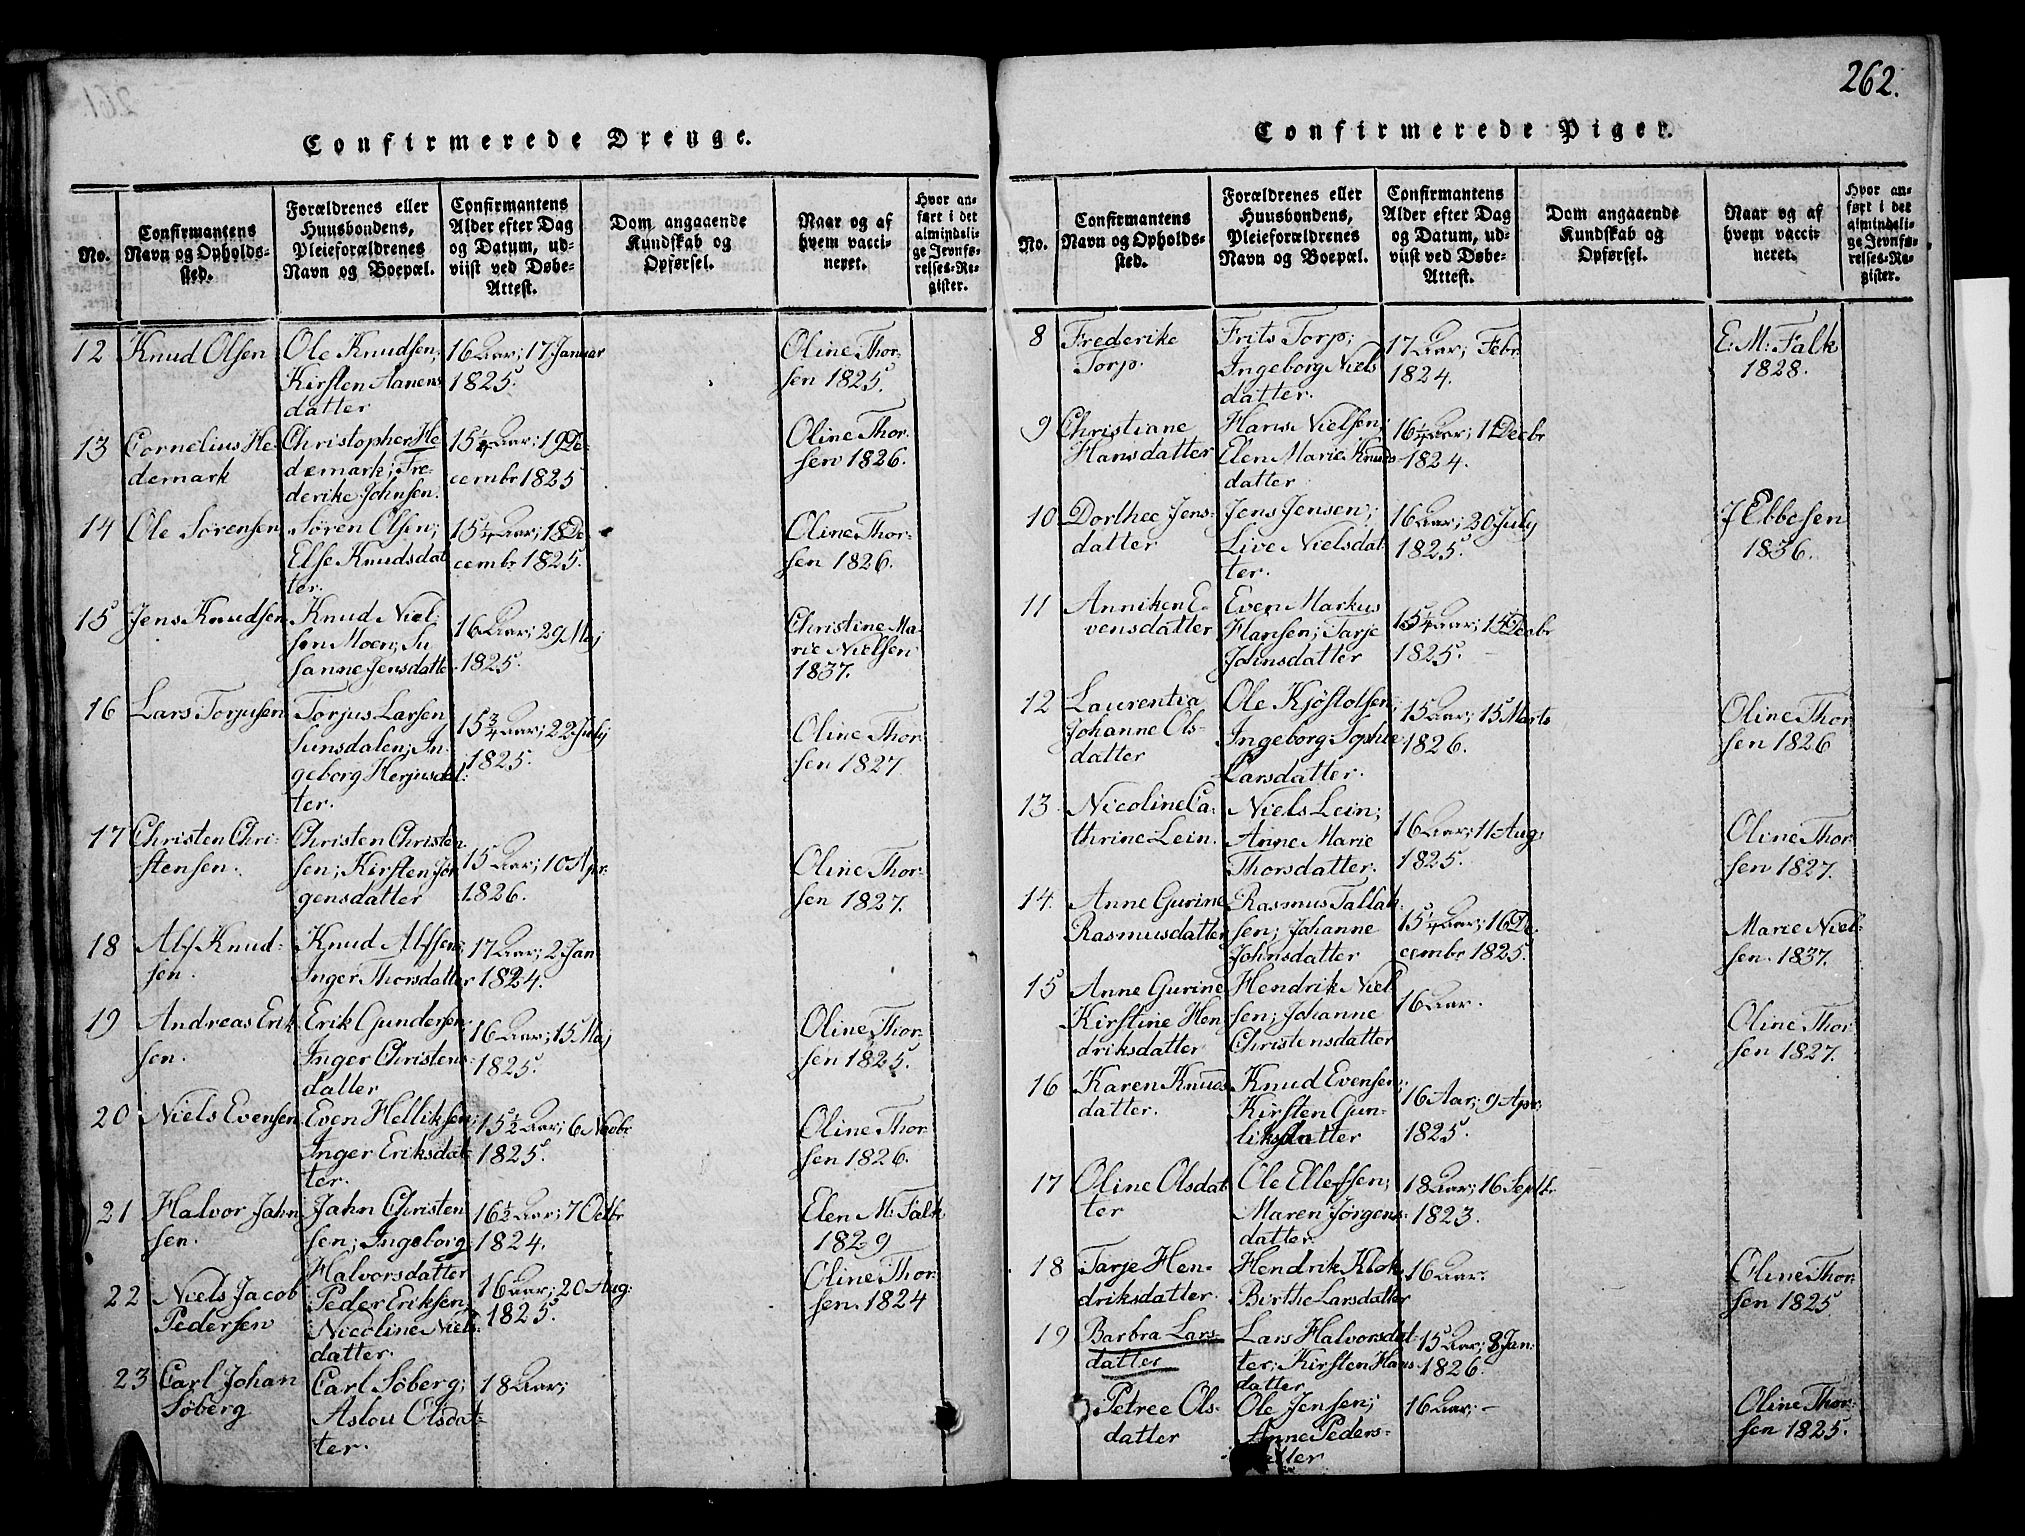 262.
Confirmerede Drenge.
No.
Confirmantens Navn og Opholdssted.
Forældrenes eller Huusbondens, Pleieforældrenes Navn og Boepæl.
Confirmantens Alder efter Dag og Datum, udviist ved Døbe-Attest.
Dom angaaende Kundskab og Opførsel.
Naar og af hvem vaccineret.
Hvor anført i det almindelige Jevnførelses-Register.
12 Knud Olsen
Ole Knudsen;
Kirsten Aanens
datter
16 Aar; 17 Januar
1825.
Oline Thor-
sen 1825.
13 Cornelius He-
demark
Christopher He-
demark; Fre-
derike Johnsen.
15¼ Aar; 19 De-
cembr 1825
Oline Thor-
sen 1826.
14 Ole Sørensen
Søren Olsen;
Else Knudsdat
ter.
15¼ Aar; 18 De
cembr 1825.
Oline Thor-
sen 1826.
15 Jens Knudsen
Knud Niel-
sen Moen; Su
sanne Jensdatte
16 Aar; 29 Maj
1825.
Christine Ma-
rie Nielsen
1837.
16 Lars Torjusen
Torjus Larsen
Sunsdalen; In-
geborg Herjusdat:
ter.
15¾ Aar; 22 July
1825.
Oline Thor
sen 1827.
17 Christen Chri-
stensen.
Christen Christen
sen; Kirsten Jør
gensdatter
15 Aar; 10 Apr.
1826.
Oline Thor-
sen 1827.
18 Alf Knud-
sen.
Knud Alfsen;
Inger Thorsdatter
17 Aar; 2 Jan
1824.
19 Andreas Erik
sen.
Erik Gundersen
Inger Christens-
datter
16 Aar; 15 Maj
1825.
Oline Thor-
sen 1825.
20 Niels Evensen
Even Helliksen;
Inger Eriksdat
ter.
15½ Aar; 6 Novbr
1825.
Oline Thor
sen 1826.
21 Halvor Jahn
sen.
Jahn Christen
sen; Ingeborg
Halvorsdatter
16½ Aar; 7 Octbr
1824.
Elen M: Falk
1829
22 Niels Jacob
Pedersen
Peder Eriksen;
Nicoline Niels-
datter.
16 Aar; 20 Aug:
1825.
Oline Thor-
sen. 1824
23 Carl Johan
Søberg
Carl Søberg;
Aslou Olsdat-
ter.
18 Aar;
Confirmerede Piger.
No.
Confirmantens Navn og Opholdssted.
Forældrenes eller Huusbondens, Pleieforældrenes Navn og Boepæl.
Confirmantens Alder efter Dag og Datum, udviist ved Døbe-Attest.
Dom angaaende Kundskab og Opførsel.
Naar og af hvem vaccineret.
Hvor anført i det almindelige Jevnførelses-Register.
8 Frederike
Torp.
Frits Torp;
Ingeborg Niels
datter.
17 Aar; Febr
1824.
E: M: Falk
1828.
9 Christiane
Hansdatter
Hans Nielsen;
Elen Marie Knuds
datter
16¼ Aar; 11 Decbr
1824.
10 Dorthee Jens-
datter
Jens Jensen;
Live Nielsdat
ter.
16 Aar; 20 July
1825.
J Ebbesen
1836.
11 Anniken E-
vensdatter
Even Markus
Hansen; Tarje
Johnsdatter
15¼ Aar; 14 Decbr
1825.
12 Laurentia
Johanne Ols-
datter
Ole Kjøstolsen;
Ingeborg Sophie
Larsdatter.
15 Aar; 15 Marts
1826.
Oline Thor
sen 1826
13 Nicoline Ca-
thrine Lein.
Niels Lein;
Anne Marie
Thorsdatter.
16 Aar; 11 Aug:
1825.
Oline Thor-
sen 1827.
14. Anne Gurine
Rasmusdatter
Rasmus Tallak-
sen; Johanne
Johnsdatter
15¼ Aar; 16 De-
cembr 1825.
Marie Niel-
sen. 1837.
15 Anne Gurine
Kirstine Hen
driksdatter
Hendrik Niel
sen; Johanne
Christensdatter
16 Aar.
Oline Thor-
sen 1827.
16 Karen Knuds
datter.
Knud Evensen;
Kirsten Gun-
liksdatter
16 Aar; 9 Apr:
1825.
17 Oline Olsdat
ter
Ole Ellefsen;
Maren Jørgens-
datter.
18 Aar; 16 Septbr
1823.
18 Tarje Hen-
driksdatter.
Hendrik Klok
Birthe Larsdatter
16 Aar.
Oline Thor-
sen 1825
19 Barbra Lars-
datter
Lars Halvorsdat-
ter; Kirsten Hans
datter
15 Aar; 8 Jan:
1826.
Petree Ols-
datter
Ole Jensen;
Anne Peders-
datter
16 Aar; -
Oline Thor-
sen 1825.